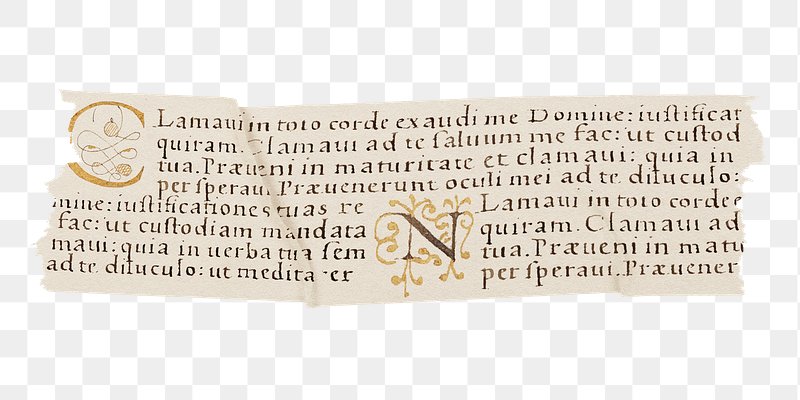 CLamaui in toto corde exaudi me Domine: iuſtificat
quiram. Clamaui ad te ſaluum me fac: ut cuſtod
tua. Præueni in maturitate et clamaui: quia in
per ſperaui. Præuenerunt oculi mei ad te diluculo:
mine: iuſtificationes tuas re
fac: ut cuſtodiam mandata
maui: quia in uerba tua ſem
ad te diluculo: ut meditarer
N Lamaui in toto corde e
quiram. Clamaui ad
tua. Præueni in matu
per ſperaui. Præuener